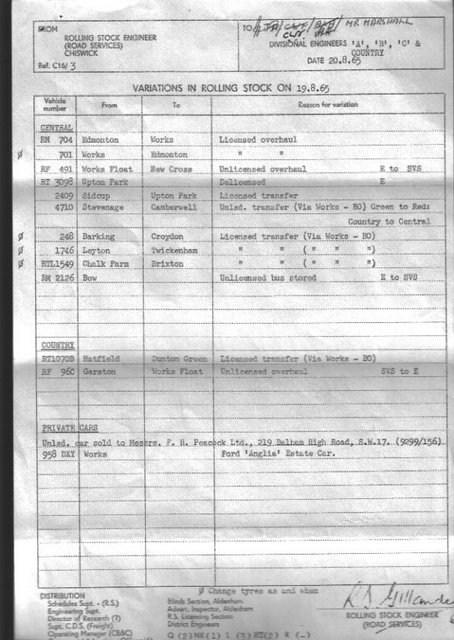 FROM
ROLLING STOCK ENGINEER
(ROAD SERVICES)
CHISWICK
Ref. C16/3
TO
MR MARSHALL
DIVISIONAL ENGINEERS 'A', 'B', 'C' &
COUNTRY
DATE 20.8.65
VARIATIONS IN ROLLING STOCK ON 19.8.65
Vehicle number From To Reason for variation
CENTRAL
RM 704 Edmonton Works Licensed overhaul
Ø 701 Works Edmonton " "
RF 491 Works Float New Cross Unlicensed overhaul E to SVS
RT 3098 Upton Park Delicensed E
2409 Sidcup Upton Park Licensed transfer
4710 Stevenage Camberwell Unlsd. transfer (Via Works - BO) Green to Red:
Country to Central
Ø 248 Barking Croydon Licensed transfer (Via Works - BO)
Ø 1746 Leyton Twickenham " " ( " " ")
Ø RTL1549 Chalk Farm Brixton " " ( " " ")
RM 2126 Bow Unlicensed bus stored E to SVS
COUNTRY
RT1070B Hatfield Dunton Green Licensed transfer (Via Works - BO)
RF 96C Garston Works Float Unlicensed overhaul SVS to E
PRIVATE CARS
Unlsd. car sold to Messrs. F. H. Peacock Ltd., 219 Balham High Road, S.W.17. (9299/156)
958 DXY Works Ford 'Anglia' Estate Car.
Ø Change tyres as and when
DISTRIBUTION
Schedules Supt. - (R.S.)
Engineering Supt.
Director of Research (7)
Supt. C.D.S. (Freight)
Operating Manager (CB&C)
Blinds Section, Aldenham
Advert. Inspector, Aldenham
R.S. Licensing Section
District Engineers
ROLLING STOCK ENGINEER
(ROAD SERVICES)